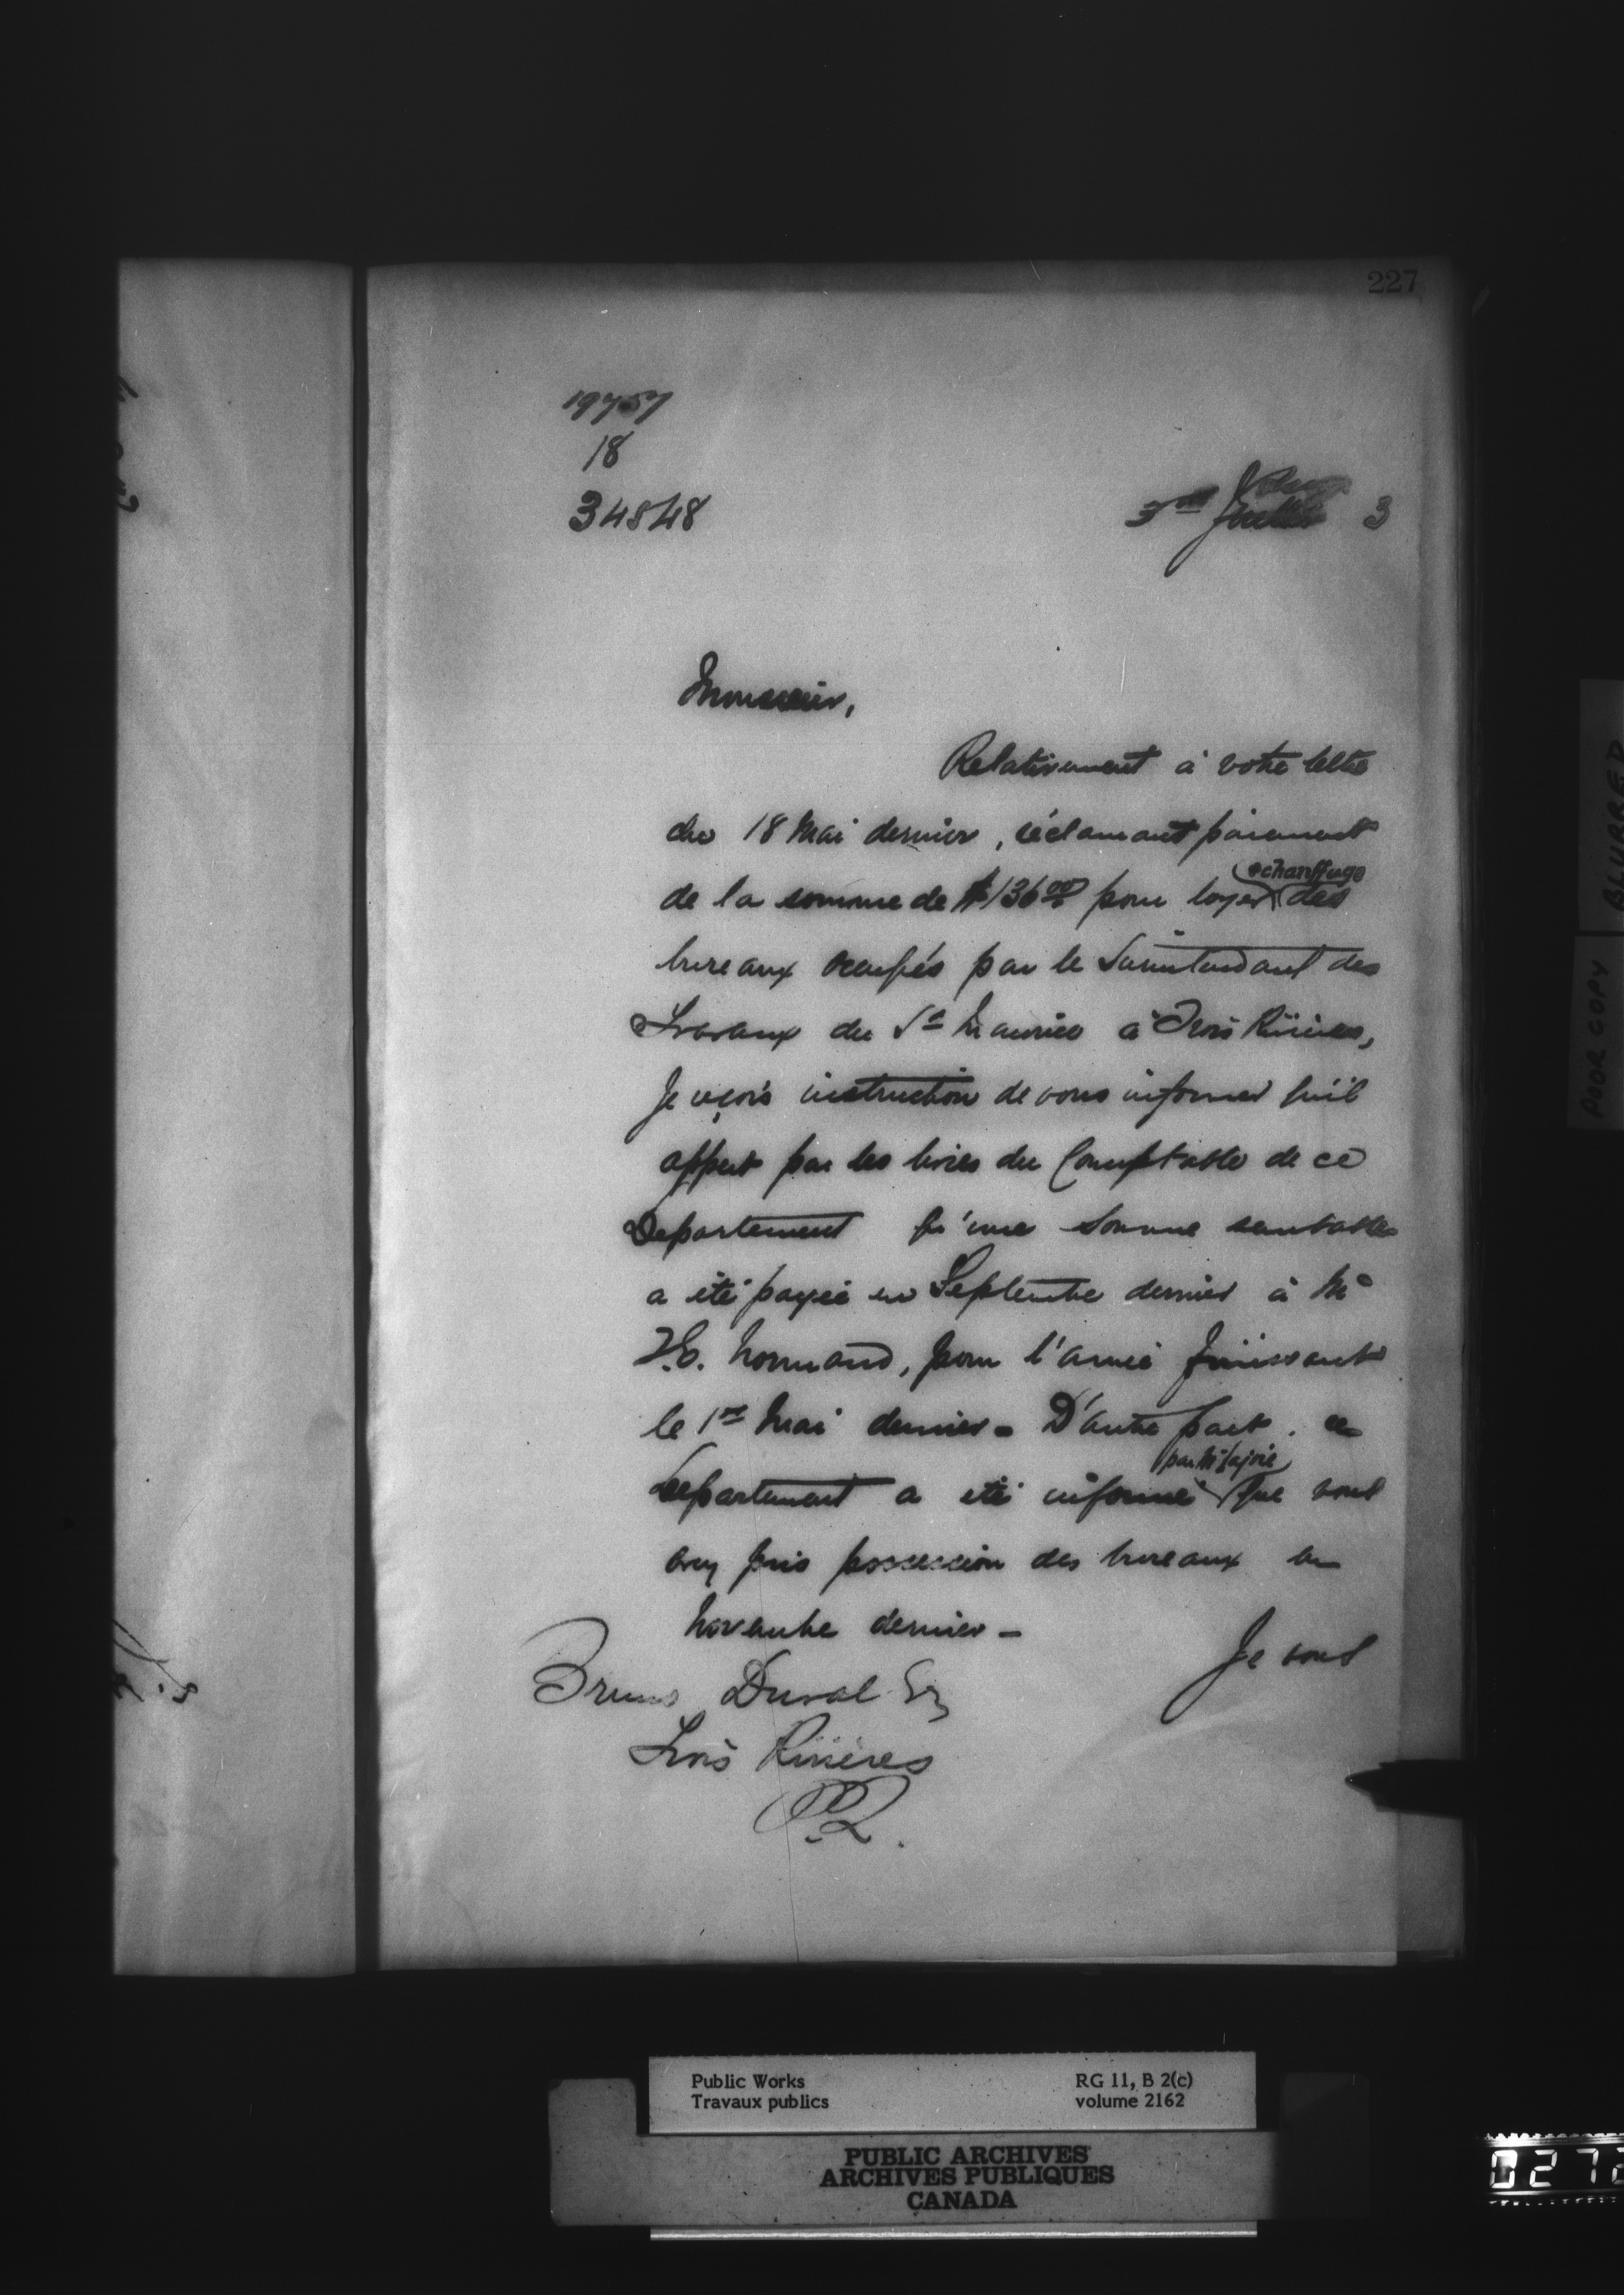 227
19757
18
34548
3
Monsieur,
Relativement à votre lettre
du 18 Mai dernier, réclamant paiement
de la somme de $136.00 pour loyer & chauffage des
bureaux occupés par le Surintendant des
Travaux du St Maurice à Trois Rivières,
Je reçois instruction de vous informer qu'il
appert par les livres du Comptable de ce
Departement qu'une somme semblable
a été payée en Septembre dernier à Mr
Normand, pour l'année finissant
le 1er Mai dernier - D'autre part, ce
Departement a été informé par Mr Lajoie que vous
avez pris possession des bureaux en
Novembre dernier -
Je suis
Bruno Duval Esq
Trois Rivières
P.Q.
BLURRED
POOR COPY
Public Works
Travaux publics
RG 11, B 2(c)
volume 2162
PUBLIC ARCHIVES
ARCHIVES PUBLIQUES
CANADA